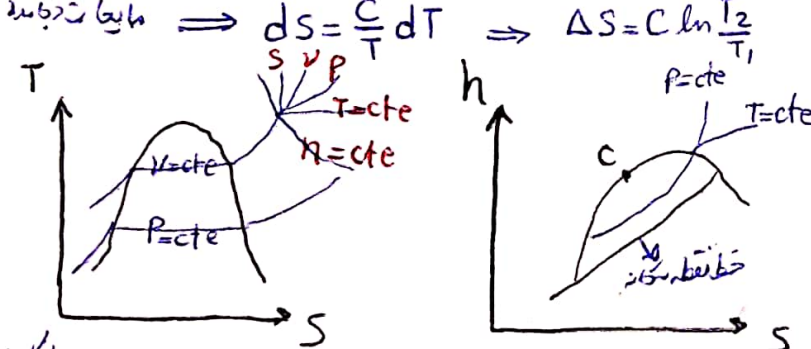 مایعات و جامدات ⇒ dS = C/T dT ⇒ ΔS = C ln T2/T1
T
S ν P
T=cte
h=cte
ν=cte
P=cte
S
h
P=cte
T=cte
C
خط نقطه سه‌گانه
S